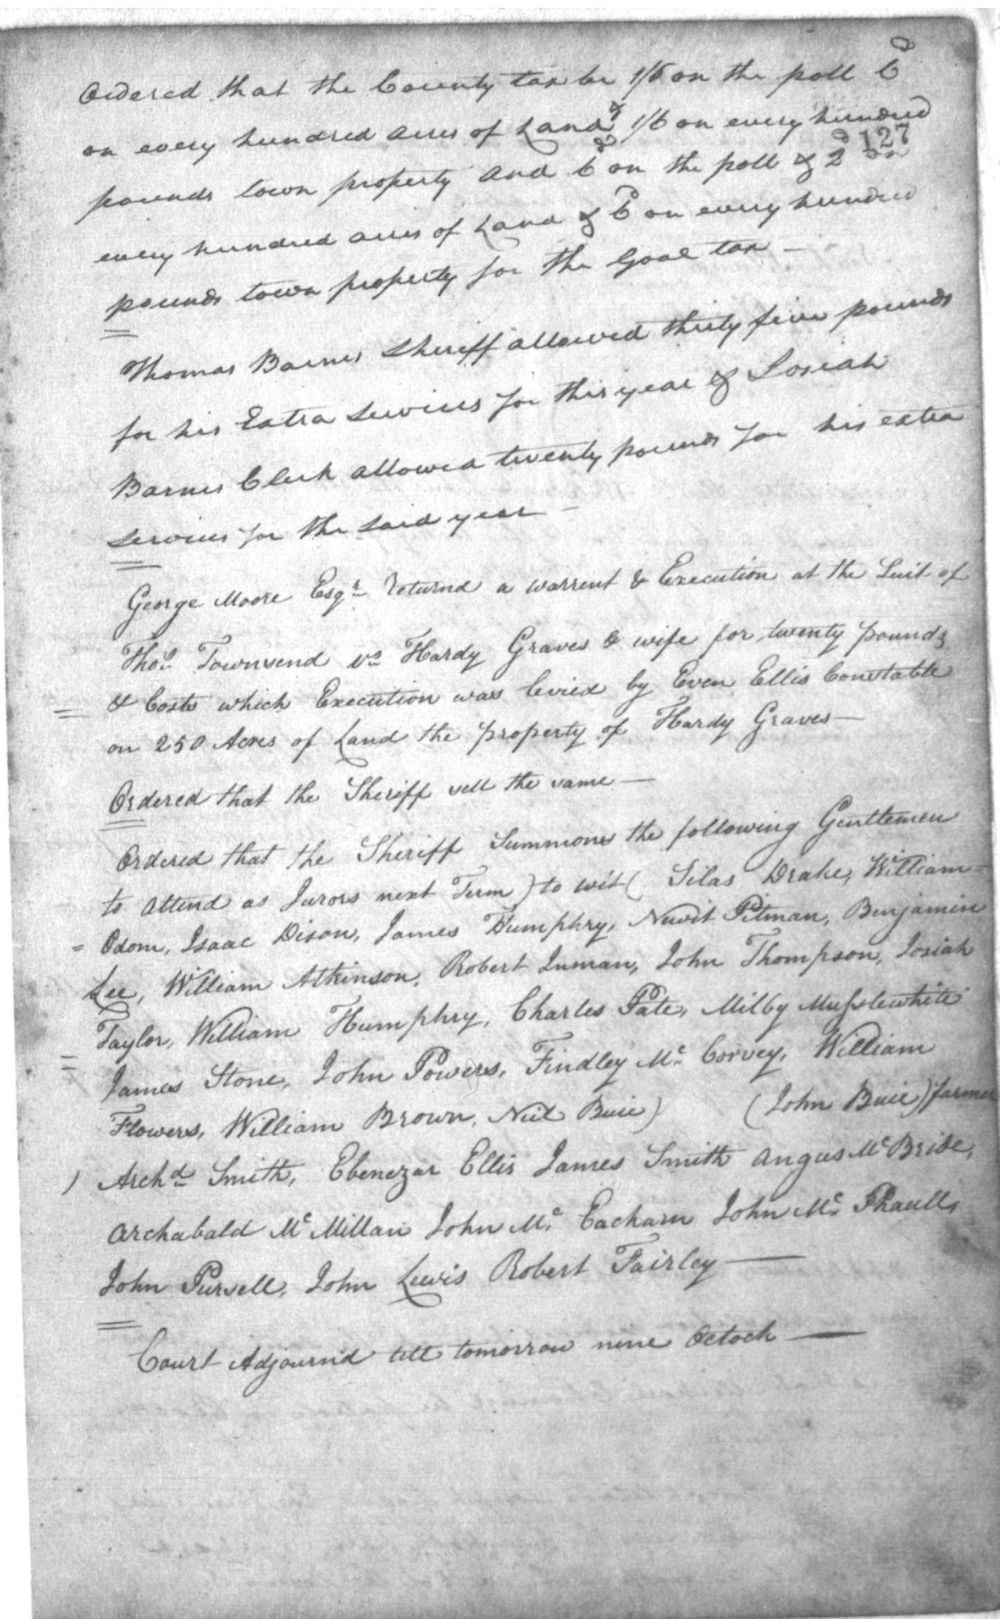 127
Ordered that the County tax be 1/6 on the poll 6d
on every hundred acres of Land & 1/6 on every hundred
pounds town property and 6d on the poll & 2d on
every hundred acres of Land & 6d on every hundred
pounds town property for the Goal tax —
Thomas Barnes Sheriff allowed thirty five pounds
for his Extra Services for this year & Josiah
Barnes Clerk allowed twenty pounds for his extra
services for the said year —
George Moore Esqr. returnd a warrent & Execution at the Suit of
Thos. Townsend vs Hardy Graves & wife for twenty pounds
& Costs which Execution was levied by Even Ellis Constable
on 250 Acres of Land the property of Hardy Graves —
Ordered that the Sheriff sell the same —
Ordered that the Sheriff Summons the following Gentlemen
to attend as Jurors next Term) to wit ( Silas Drake, William
Odom, Isaac Dison, James Humphry, Newit Pitman, Benjamin
Lee, William Atkinson, Robert Inman, John Thompson, Josiah
Taylor, William Humphry, Charles Pate, Milby Musslewhite
James Stone, John Powers, Findley Mc. Corvey, William
Flowers, William Brown, Neil Buie) (John Buie) farmer
) Archd. Smith, Ebenezar Ellis James Smith Angus Mc Bride,
Archabald Mc Millan John Mc. Eacharn John Mc. Phaull,
John Pursell, John Lewis Robert Fairley —
Court Adjournd till tomorrow nine Octock —